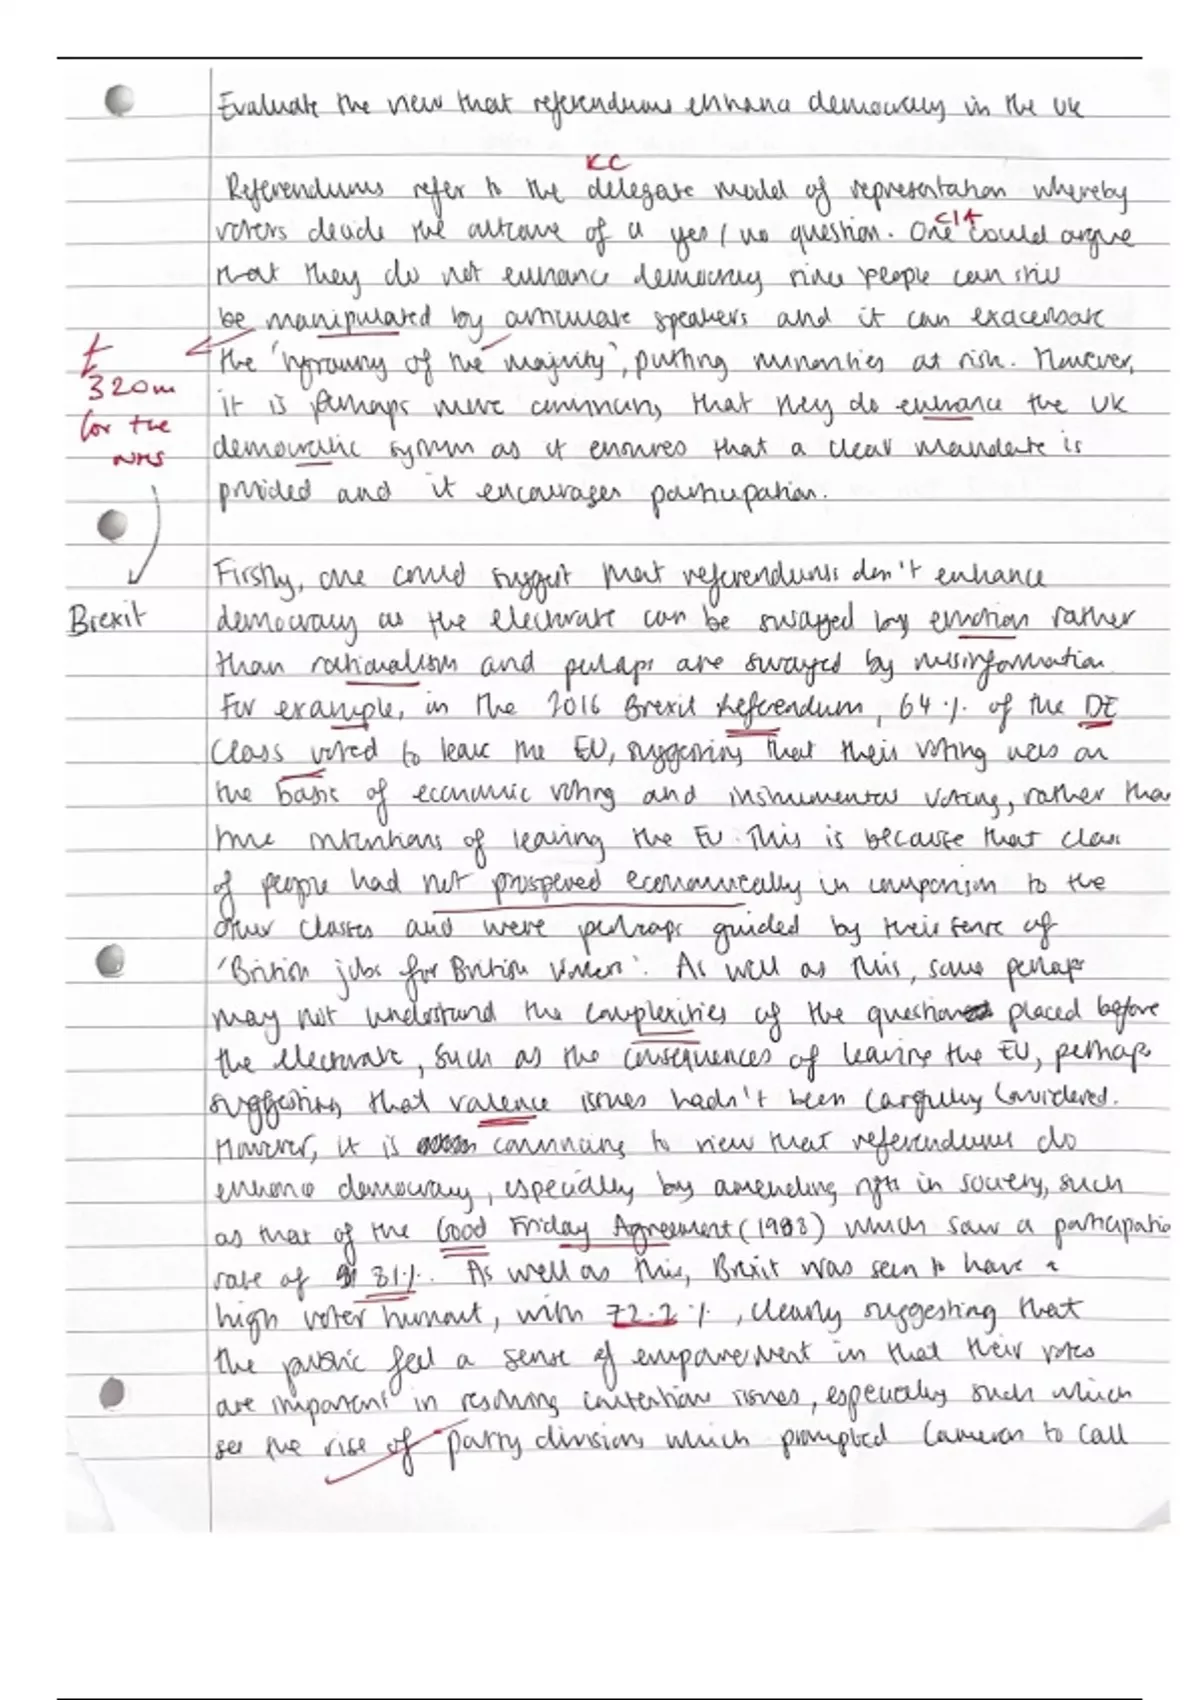 Evaluate the view that referendums enhance democracy in the UK
KC
Referendums refer to the delegate model of representation whereby
voters decide the outcome of a yes / no question. One could argue
CIA
that they do not enhance democracy since people can still
be manipulated by articulate speakers and it can exacerbate
the 'tyranny of the majority', putting minorities at risk. However,
£
320m
for the
NHS
it is perhaps more convincing that they do enhance the UK
democratic system as it ensures that a clear mandate is
provided and it encourages participation.
Firstly, one could suggest that referendums don't enhance
Brexit
democracy as the electorate can be swayed by emotion rather
than rationalism and perhaps are swayed by misinformation.
For example, in the 2016 Brexit Referendum, 64 % of the DE
Class voted to leave the EU, suggesting that their voting was on
the basis of economic voting and instrumental voting, rather than
true intentions of leaving the EU. This is because that class
of people had not prospered economically in comparison to the
other classes and were perhaps guided by their sense of
'British jobs for British workers'. As well as this, some perhaps
may not understand the complexities of the question placed before
the electorate, such as the consequences of leaving the EU, perhaps
suggesting that valence issues hadn't been carefully considered.
However, it is convincing to view that referendums do
enhance democracy, especially by amending rights in society, such
as that of the Good Friday Agreement (1998) which saw a participatio
rate of 81%. As well as this, Brexit was seen to have a
high voter turnout, with 72.2 %, clearly suggesting that
the public feel a sense of empowerment in that their votes
are important in resolving contentious issues, especially such which
see the rise of party divisions which prompted Cameron to call